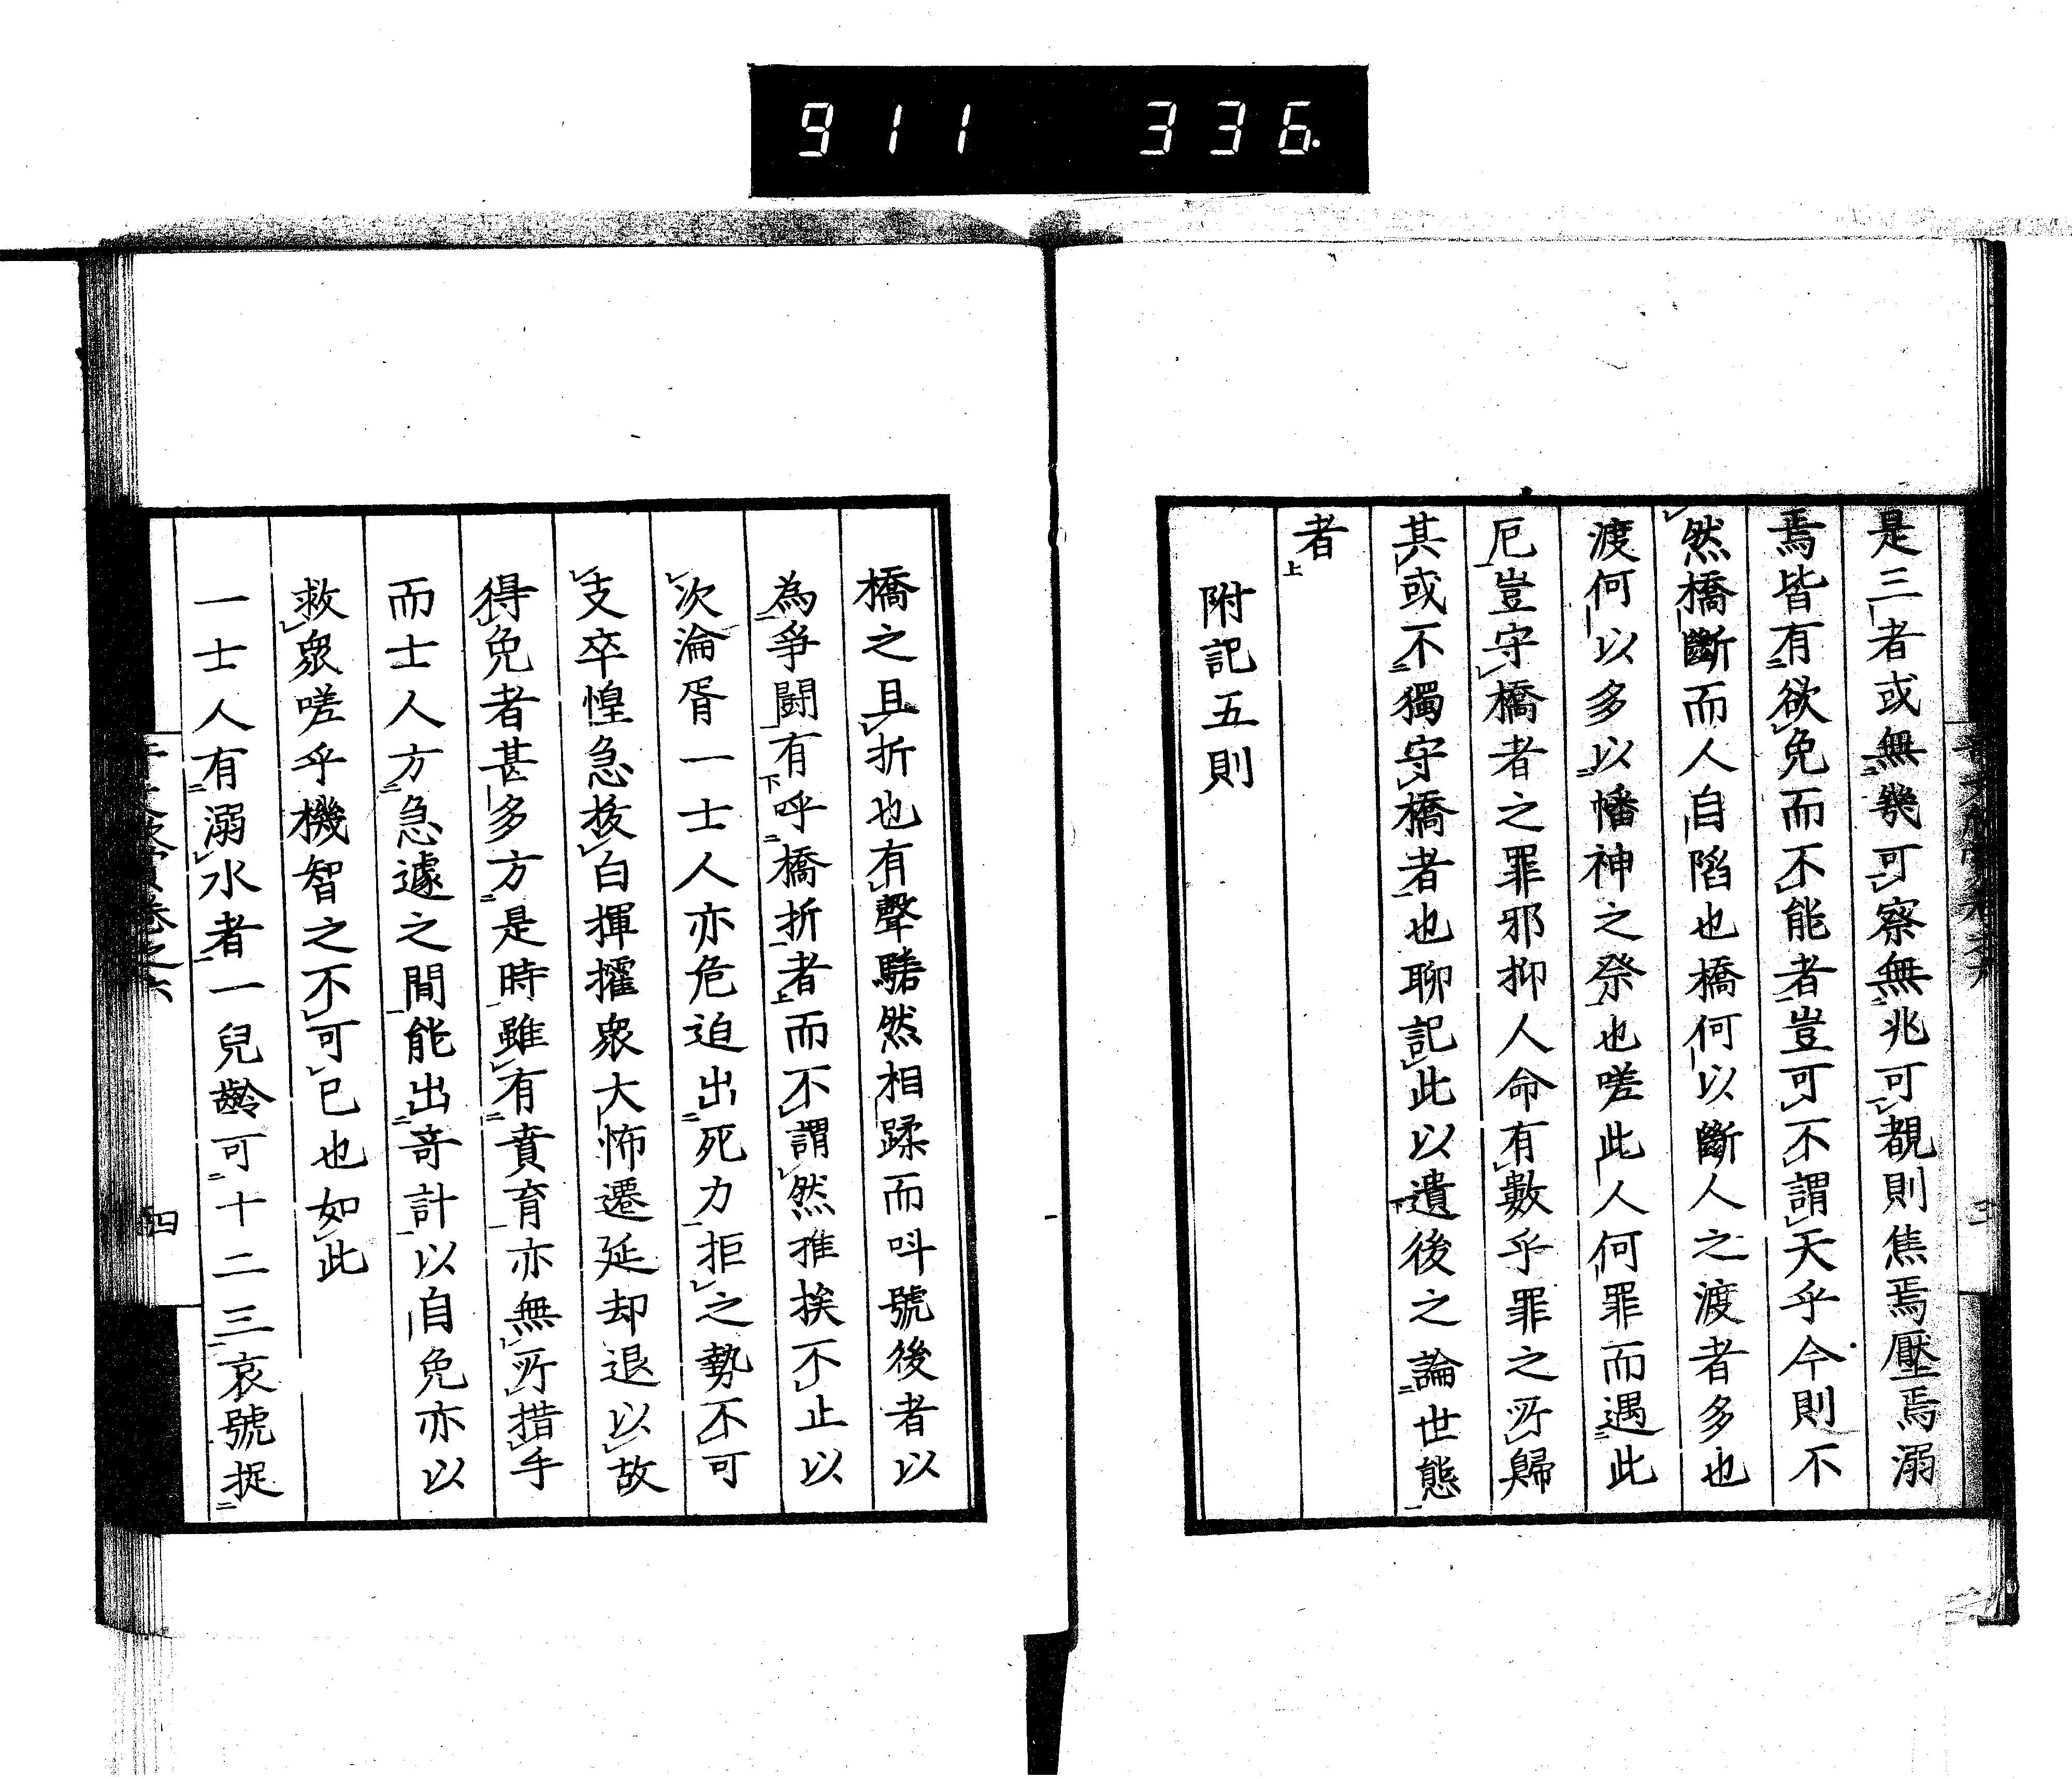 911 336.
是三者或無幾可察無兆可覩則焦焉壓焉溺
焉皆有欲免而不能者豈可不謂天乎今則不
然橋斷而人自陷也橋何以斷人之渡者多也
渡何以多以幡神之祭也嗟此人何罪而遇此
厄豈守橋者之罪邪抑人命有數乎罪之所歸
其或不獨守橋者也聊記此以遺後之論世態
者
附記五則
橋之且折也有聲騞然相蹂而呌號後者以
為爭鬪有呼橋折者而不謂然推挨不止以
次淪胥一士人亦危迫出死力拒之勢不可
支卒惶急拔白揮攉衆大怖遷延却退以故
得免者甚多方是時雖有賁育亦無所措手
而士人方急遽之間能出奇計以自免亦以
救衆嗟乎機智之不可已也如此
一士人有溺水者一兒齡可十二三哀號捉
卷之六
四